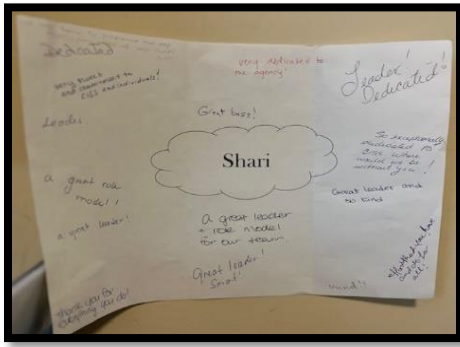 Dedicated
very sweet
and commitment to
CISS and individuals!
Leader
a great role
model!
a great leader!
Thank you for
everything you do!
very dedicated to
the agency!
Great boss!
Shari
A great leader
+ role model
for our team
Great leader!
Smart!
Leader!
Dedicated!
So exceptionally
dedicated to
where
would we be
without you!
Great leader and
so kind
and do for
all!
Kind!!